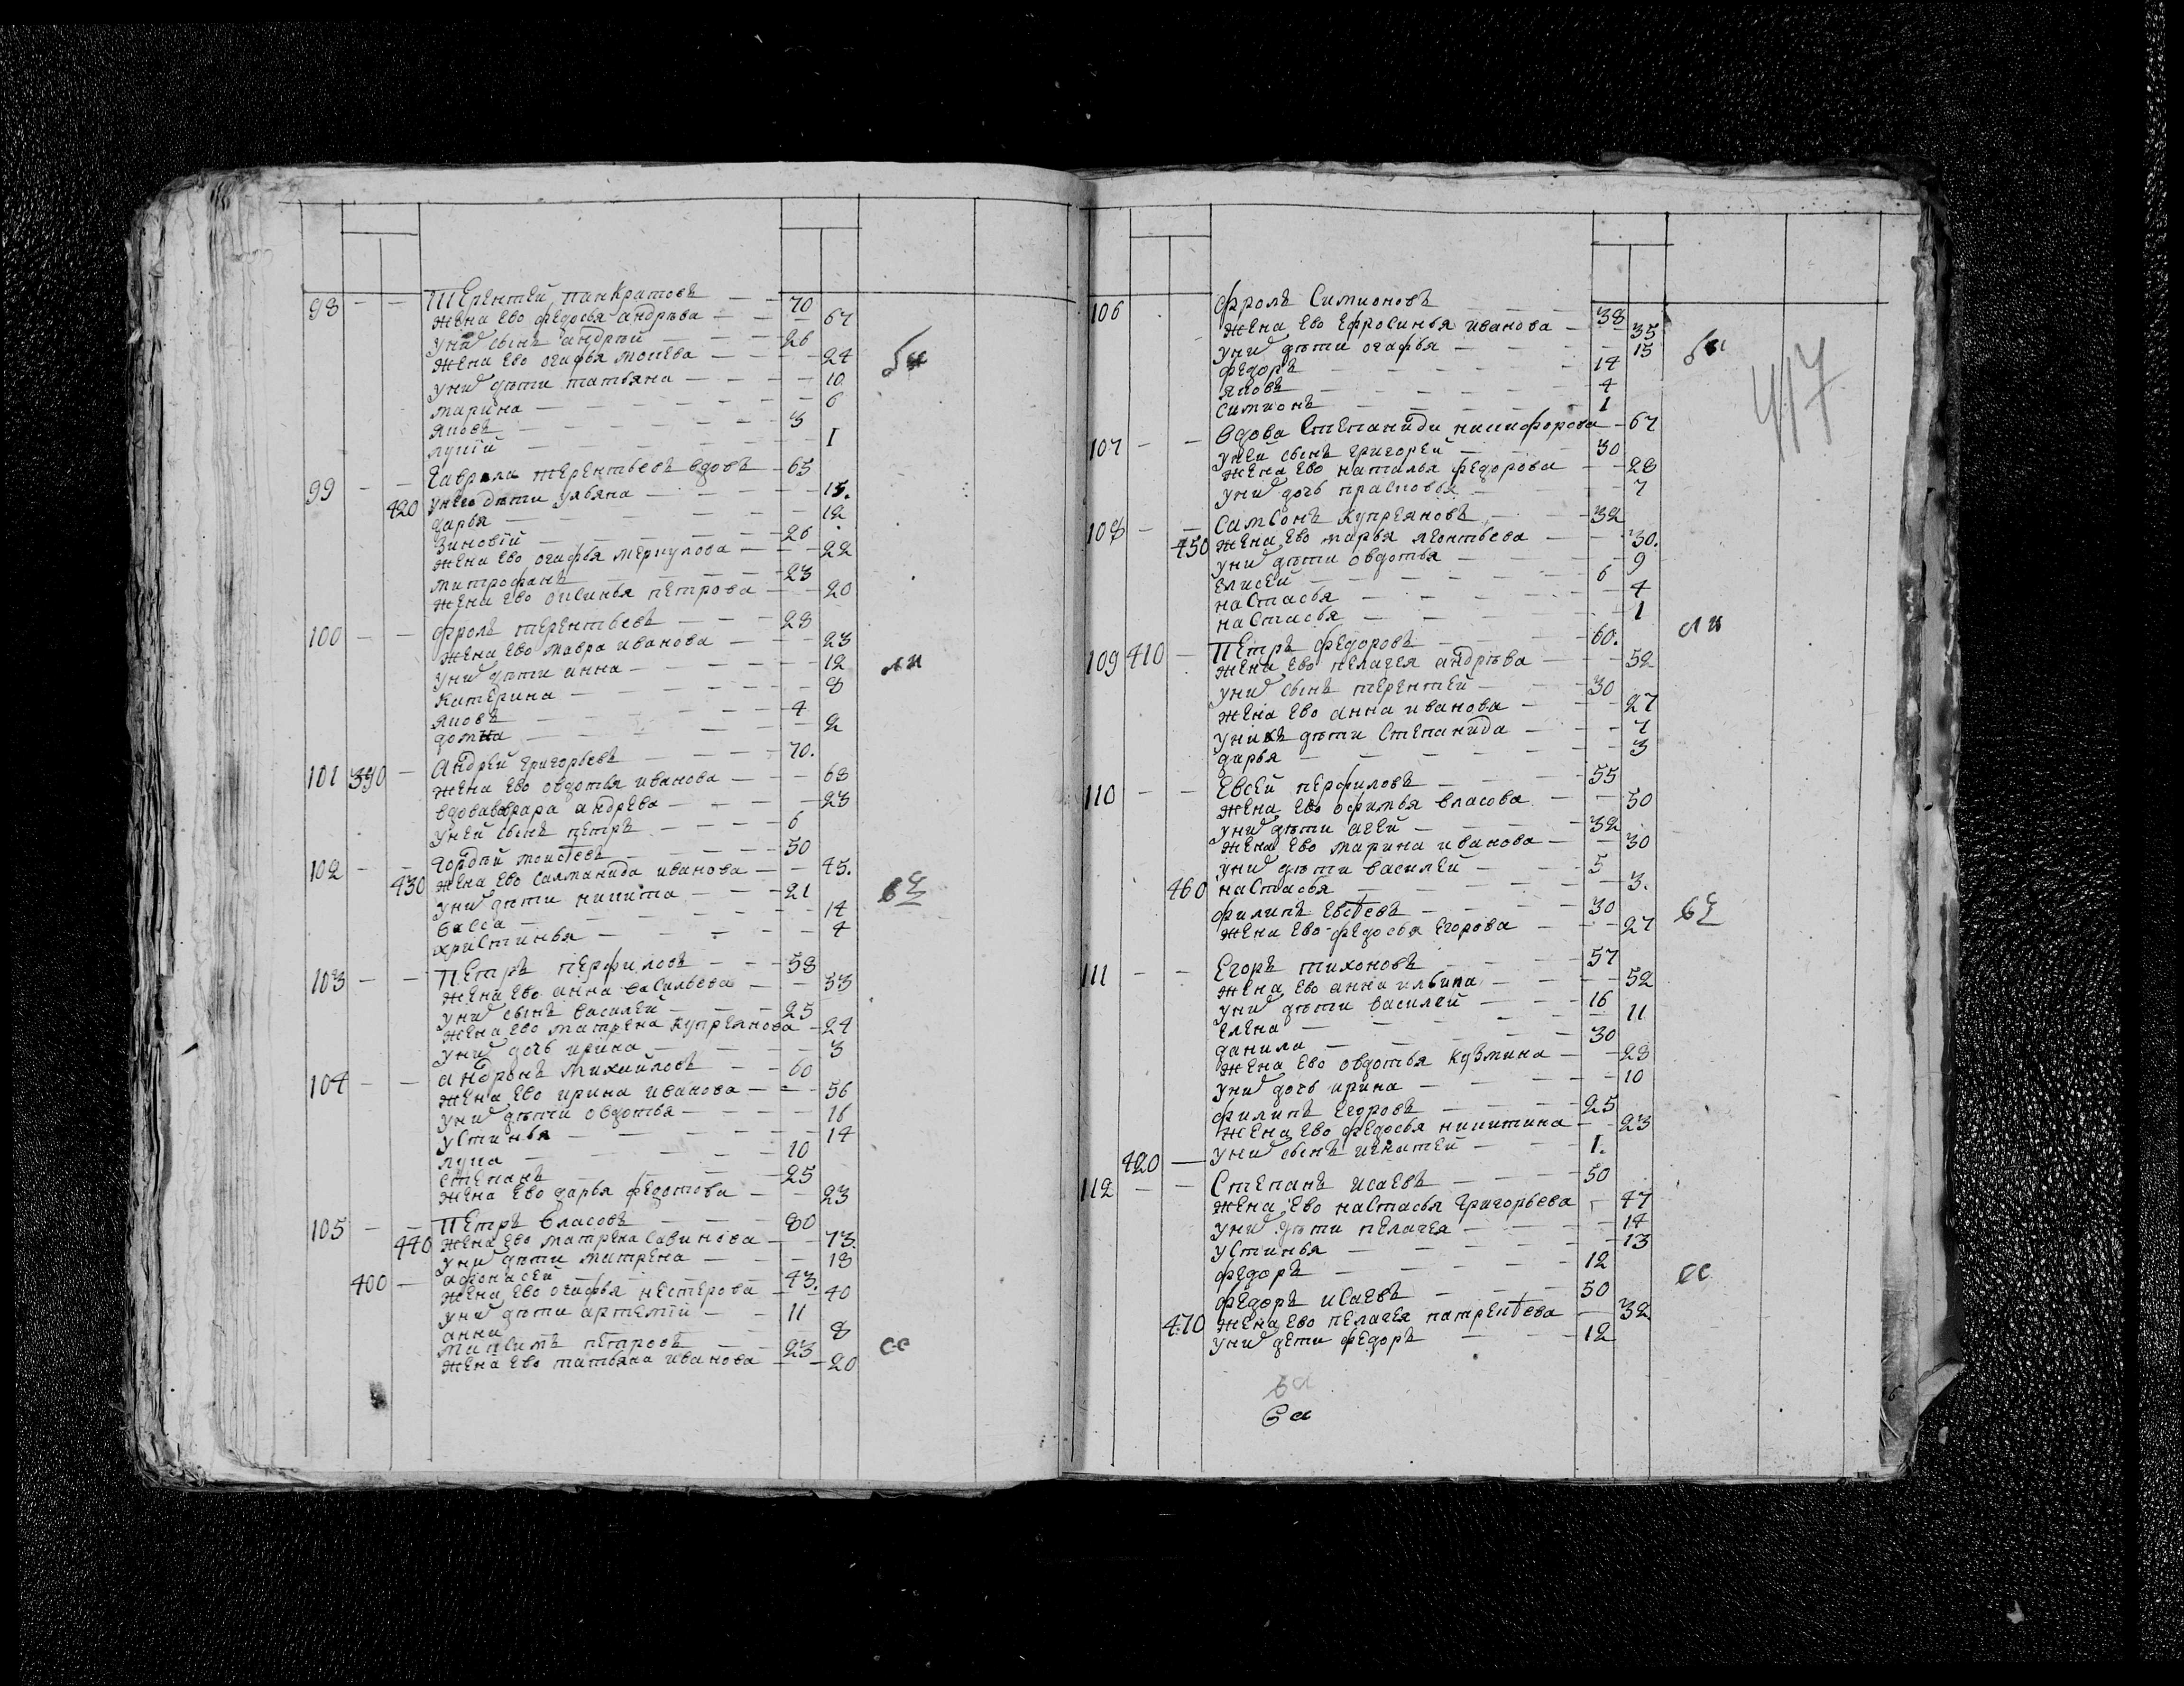 98 - - Терентей панкратовъ - - 70
жена ево федосья андрѣва - - - 67
уних сынъ андрѣй - - 26
жена ево огафья моиева - - - 24
уних дѣти татьяна - - - - 10
марина - - - - - - 6
яковъ - - - - - 3
лукій - - - - - - 1
99 - - Гаврила терентьевъ вдовъ - 65
420 унего дѣти ульяна - - - - 15.
дарья - - - - - - 12
Зиновій - - - - - 26
жена ево огафья меркулова - - - 22
митрофанъ - - - - 23
жена ево оксинья петрова - - 20
100 - - фролъ терентьевъ - - - 28
жена ево мавра иванова - - - 23
уних дѣти анна - - - - - 12
катерина - - - - - - 8
яковъ - - - - - 4
домна - - - - - - 2
101 390 - Андрей григорьевъ - - - 70.
жена ево овдотья иванова - - - 68
вдова варвара андрева - - - - 23
уней сынъ петръ - - - - 6
102 - - Гордѣй моисѣевъ - - - 50
430 жена ево саламанида иванова - - 45.
уних дѣти никита - - - 21
васса - - - - - - 14
христинья - - - - - 4
103 - - Петръ перфиловъ - - - 58
жена ево анна васильева - - 53
уних сынъ василей - - - 25
жена ево матрена купреянова - 24
уних дочь ирина - - - - 3
104 - - андронъ михайловъ - - 60
жена ево ирина иванова - - - 56
уних дѣти овдотья - - - - 16
устинья - - - - - - 14
лука - - - - - 10
степанъ - - - - 25
жена ево дарья федотова - - 23
105 - - Петръ власовъ - - - 80
440 жена ево матрена савинова - - 73.
уних дѣти матрена - - - 18
400 - афонасей - - - - 43.
жена ево огафья нестерова - - 40
уних дѣти артемій - - 11
анна - - - - - 8
максимъ петровъ - - 23
жена ево татьяна иванова - - 20
106 фролъ Симионовъ - - - 38
жена ево ефросинья иванова - - 35
уних дѣти огафья - - - - 15
федоръ - - - - - 14
яковъ - - - - - 4
симионъ - - - - - 1
107 - - вдова Степанида никифорова - 67
уней сынъ григорей - - - 30
жена ево наталья федорова - - 28
уних дочь прасковья - - - 7
108 - - Самсонъ купреяновъ - - 32
450 жена ево марья леонтьева - - - 30.
уних дѣти овдотья - - - - 9
елисей - - - - - 6
настасья - - - - - - 4
настасья - - - - - - 1
109 410 - Петръ федоровъ - - - 60.
жена ево пелагея андрѣва - - - 52
уних сынъ терентей - - - 30
жена ево анна иванова - - - 27
унихъ дѣти Степанида - - - 7
дарья - - - - - - 3
110 - - Евсей перфиловъ - - - 55
жена ево офимья власова - - - 50
уних дѣти агей - - - - 32
жена ево марина иванова - - - 30
уних дѣти василей - - - 5
460 настасья - - - - - - 3.
филипъ евсѣевъ - - - - 30
жена ево федосья егорова - - - 27
111 - - Егоръ тихоновъ - - - 57
жена ево анна ильина - - - 52
уних дѣти василей - - - 16
елена - - - - - - 11
данила - - - - - 30
жена ево овдотья кузмина - - 28
уних дочь ирина - - - - 10
филипъ егоровъ - - - - 25
жена ево федосья никитина - - 23
420 - уних сынъ игнатей - - - 1.
112 - - Степанъ исаевъ - - - 50
жена ево настасья григорьева - 47
уних дѣти пелагея - - - - 14
устинья - - - - - - 13
федоръ - - - - - 12
федоръ исаевъ - - - 50
470 жена ево пелагея - 32
уних дети федоръ - - - 12
417